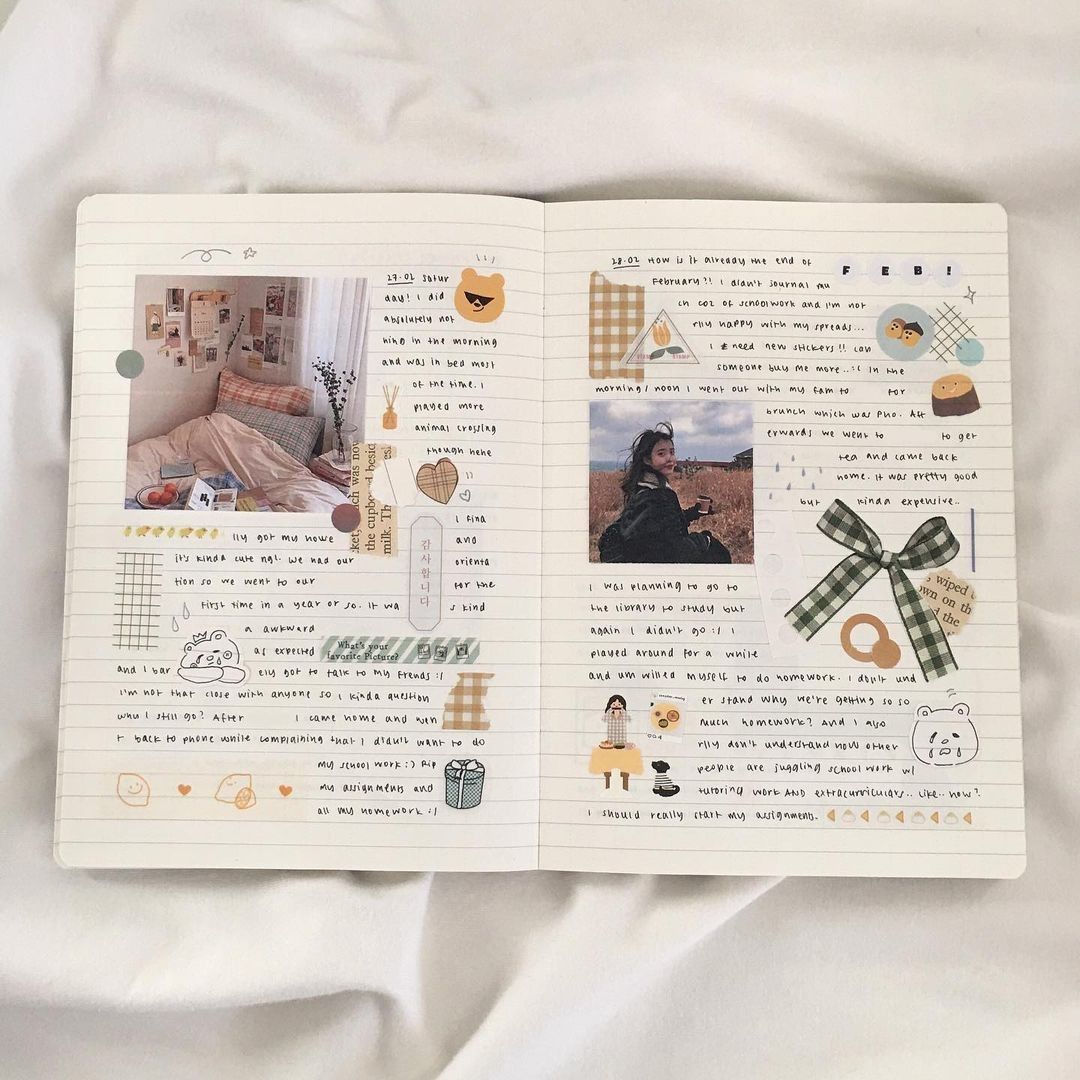 27.02 Satur
day! I did
absolutely not
hing in the morning
and was in bed most
of the time. I
played more
animal crossing
though hehe
ket,
ch was now
the cupbo
beside
milk. Th
es.
I fina
lly got my house
and
it's kinda cute ngl. we had our
orienta
tion so we went to our
for the
first time in a year or so. It wa
s kind
a awkward
감사합니다
as expected
What's your
favorite Picture?
and I bar ely got to talk to my friends :/
I'm not that close with anyone so I kinda question
why I still go? After I came home and wen
t back to phone while complaining that I didn't want to do
my school work :) Rip
my assignments and
all my homework :/
28.02 How is it already the end of
FEB!
February?! I didn't journal mu
ch coz of schoolwork and I'm not
rlly happy with my spreads...
I need new stickers!! can
someone buy me more..:( In the
morning/noon I went out with my fam to for
brunch which was pho. Aft
erwards we went to to get
tea and came back
home. It was pretty good
but kinda expensive..
s wiped
own on th
d the
I was planning to go to
the library to study but
again I didn't go :/ I
played around for a while
and um willed myself to do homework. I don't und
er stand why we're getting so so
much homework? And I also
rlly don't understand how other
people are juggling school work w/
tutoring work AND extracurriculars.. like.. how?
I should really start my assignments.